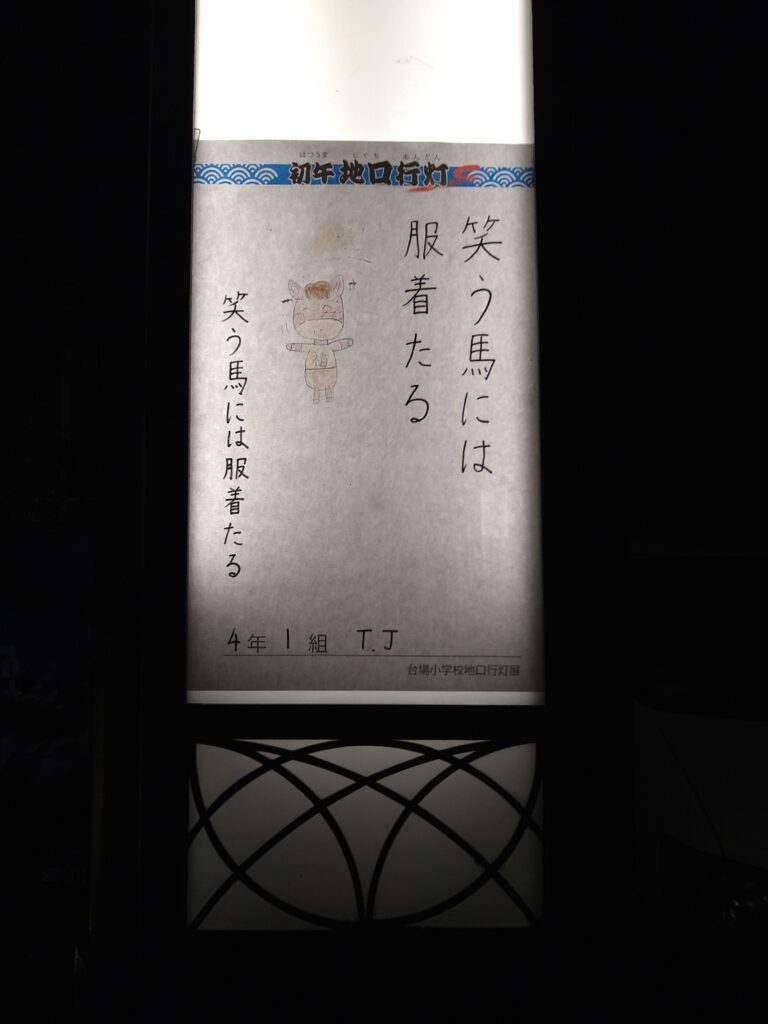 はつうま じぐち あんどん
初午地口行灯
笑う馬には
服着たる
福
笑う馬には服着たる
4年 1 組 T.J
台場小学校地口行灯展